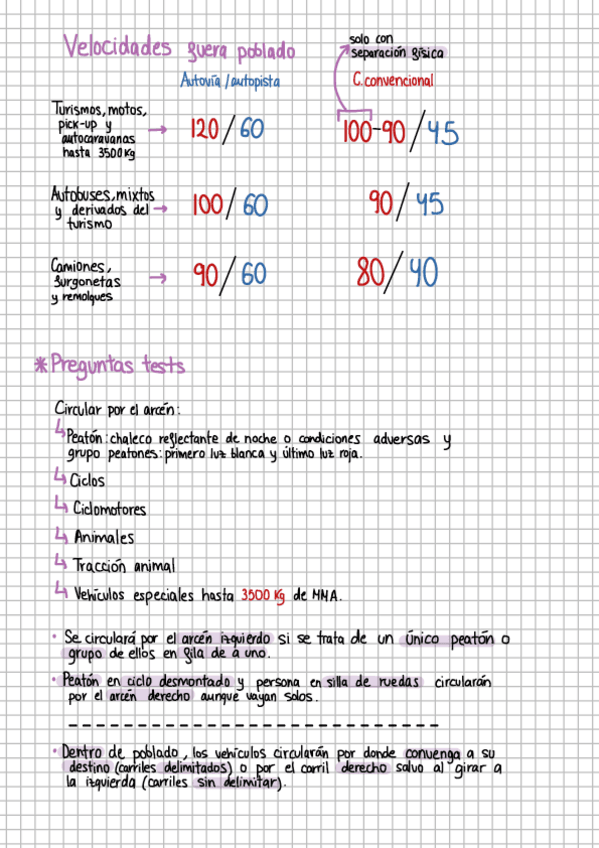 Velocidades fuera poblado
solo con
separación física
Autovía / autopista
C. convencional
Turismos, motos,
pick-up y
autocaravanas
hasta 3500 Kg
→ 120 / 60
100-90 / 45
Autobuses, mixtos
y derivados del
turismo
→ 100 / 60
90 / 45
Camiones,
furgonetas
y remolques
→ 90 / 60
80 / 40
* Preguntas tests
Circular por el arcén:
↳ Peatón: chaleco reflectante de noche o condiciones adversas y
grupo peatones: primero luz blanca y último luz roja.
↳ Ciclos
↳ Ciclomotores
↳ Animales
↳ Tracción animal
↳ Vehículos especiales hasta 3500 Kg de MMA.
· Se circulará por el arcén izquierdo si se trata de un único peatón o
grupo de ellos en fila de a uno.
· Peatón en ciclo desmontado y persona en silla de ruedas circularán
por el arcén derecho aunque vayan solos.
· Dentro de poblado, los vehículos circularán por donde convenga a su
destino (carriles delimitados) o por el carril derecho salvo al girar a
la izquierda (carriles sin delimitar).